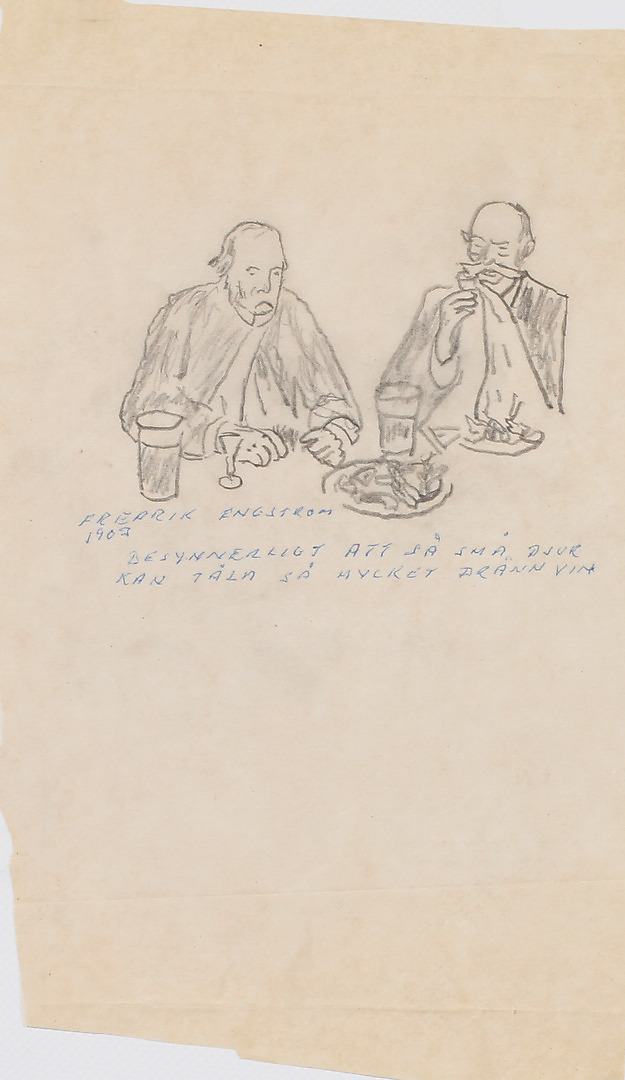 FREDRIK ENGSTROM
1907
BESYNNERLIGT ATT SÅ SMÅ DJUR
KAN TÅLA SÅ MYCKET BRÄNNVIN